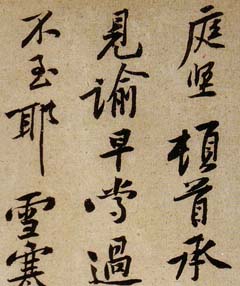 庭堅頓首承
見諭早嘗過
不至耶雪寒